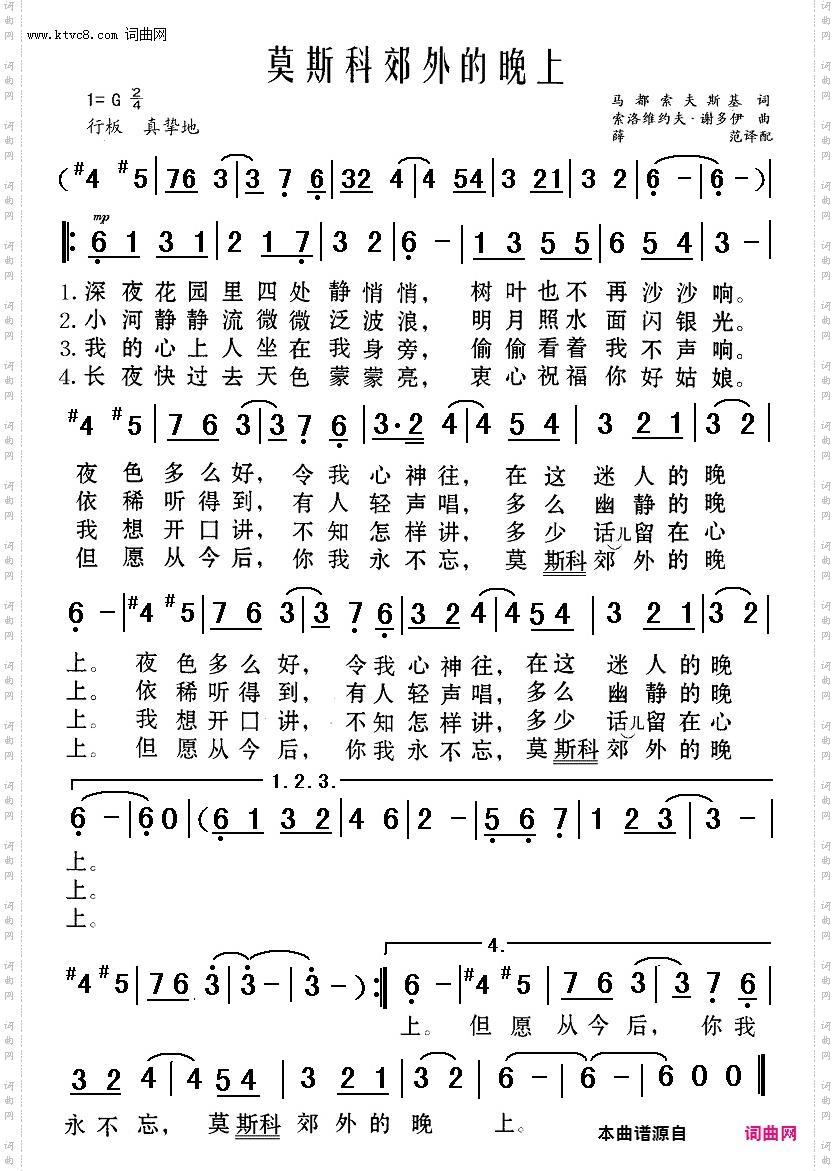 www.ktvc8.com 词曲网
莫斯科郊外的晚上
1= G 2/4
马都索夫斯基 词
行板 真挚地
索洛维约夫·谢多伊 曲
薛 范译配
( #4 #5 | 76 3 | 3 7 6 | 32 4 | 4 54 | 3 21 | 3 2 | 6 - | 6 - )
mp
‖: 6 1 3 1 | 2 1 7 | 3 2 | 6 - | 1 3 5 5 | 6 5 4 | 3 - |
1.深夜花园里四处静悄悄, 树叶也不再沙沙响。
2.小河静静流微微泛波浪, 明月照水面闪银光。
3.我的心上人坐在我身旁, 偷偷看着我不声响。
4.长夜快过去天色蒙蒙亮, 衷心祝福你好姑娘。
#4 #5 | 7 6 3 | 3 7 6 | 3·2 4 | 4 5 4 | 3 2 1 | 3 2 |
夜色多么好, 令我心神往, 在这迷人的晚
依稀听得到, 有人轻声唱, 多么幽静的晚
我想开口讲, 不知怎样讲, 多少话儿留在心
但愿从今后, 你我永不忘, 莫斯科郊外的晚
6 - | #4 #5 | 7 6 3 | 3 7 6 | 3 2 4 | 4 5 4 | 3 2 1 | 3 2 |
上。 夜色多么好, 令我心神往, 在这迷人的晚
上。 依稀听得到, 有人轻声唱, 多么幽静的晚
上。 我想开口讲, 不知怎样讲, 多少话儿留在心
上。 但愿从今后, 你我永不忘, 莫斯科郊外的晚
1.2.3.
6 - | 6 0 | ( 6 1 3 2 | 4 6 | 2 - | 5 6 7 | 1 2 3 | 3 - |
上。
上。
上。
4.
#4 #5 | 7 6 3 | 3 - | 3 - ) :‖ 6 - | #4 #5 | 7 6 3 | 3 7 6 |
上。 但愿从今后, 你我
3 2 4 | 4 5 4 | 3 2 1 | 3 2 | 6 - | 6 - | 6 0 0 ‖
永不忘, 莫斯科郊外的晚 上。
本曲谱源自 词曲网